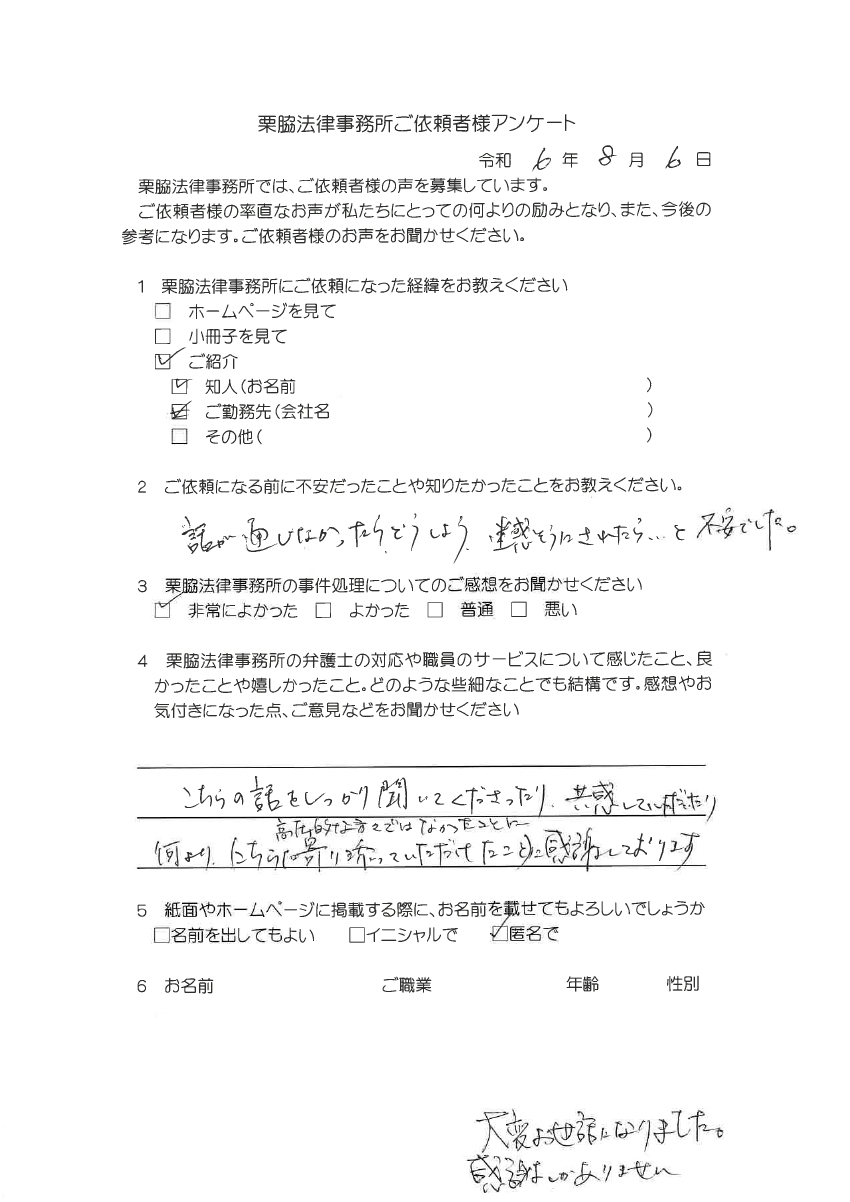 栗脇法律事務所ご依頼者様アンケート
令和 6 年 8 月 6 日
栗脇法律事務所では、ご依頼者様の声を募集しています。
ご依頼者様の率直なお声が私たちにとっての何よりの励みとなり、また、今後の
参考になります。ご依頼者様のお声をお聞かせください。
1 栗脇法律事務所にご依頼になった経緯をお教えください
□ ホームページを見て
□ 小冊子を見て
☑ ご紹介
☑ 知人(お名前 )
☑ ご勤務先(会社名 )
□ その他( )
2 ご依頼になる前に不安だったことや知りたかったことをお教えください。
話が通じなかったらどうしよう、迷惑そうにされたら…と不安でした。
3 栗脇法律事務所の事件処理についてのご感想をお聞かせください
☑ 非常によかった □ よかった □ 普通 □ 悪い
4 栗脇法律事務所の弁護士の対応や職員のサービスについて感じたこと、良
かったことや嬉しかったこと。どのような些細なことでも結構です。感想やお
気付きになった点、ご意見などをお聞かせください
こちらの話をしっかり聞いてくださったり、共感していただたり
高圧的な方々ではなかったことに
何より、こちらに寄り添っていただけたことに感謝しております
5 紙面やホームページに掲載する際に、お名前を載せてもよろしいでしょうか
□名前を出してもよい □イニシャルで ☑匿名で
6 お名前 ご職業 年齢 性別
大変お世話になりました。
感謝しかありません